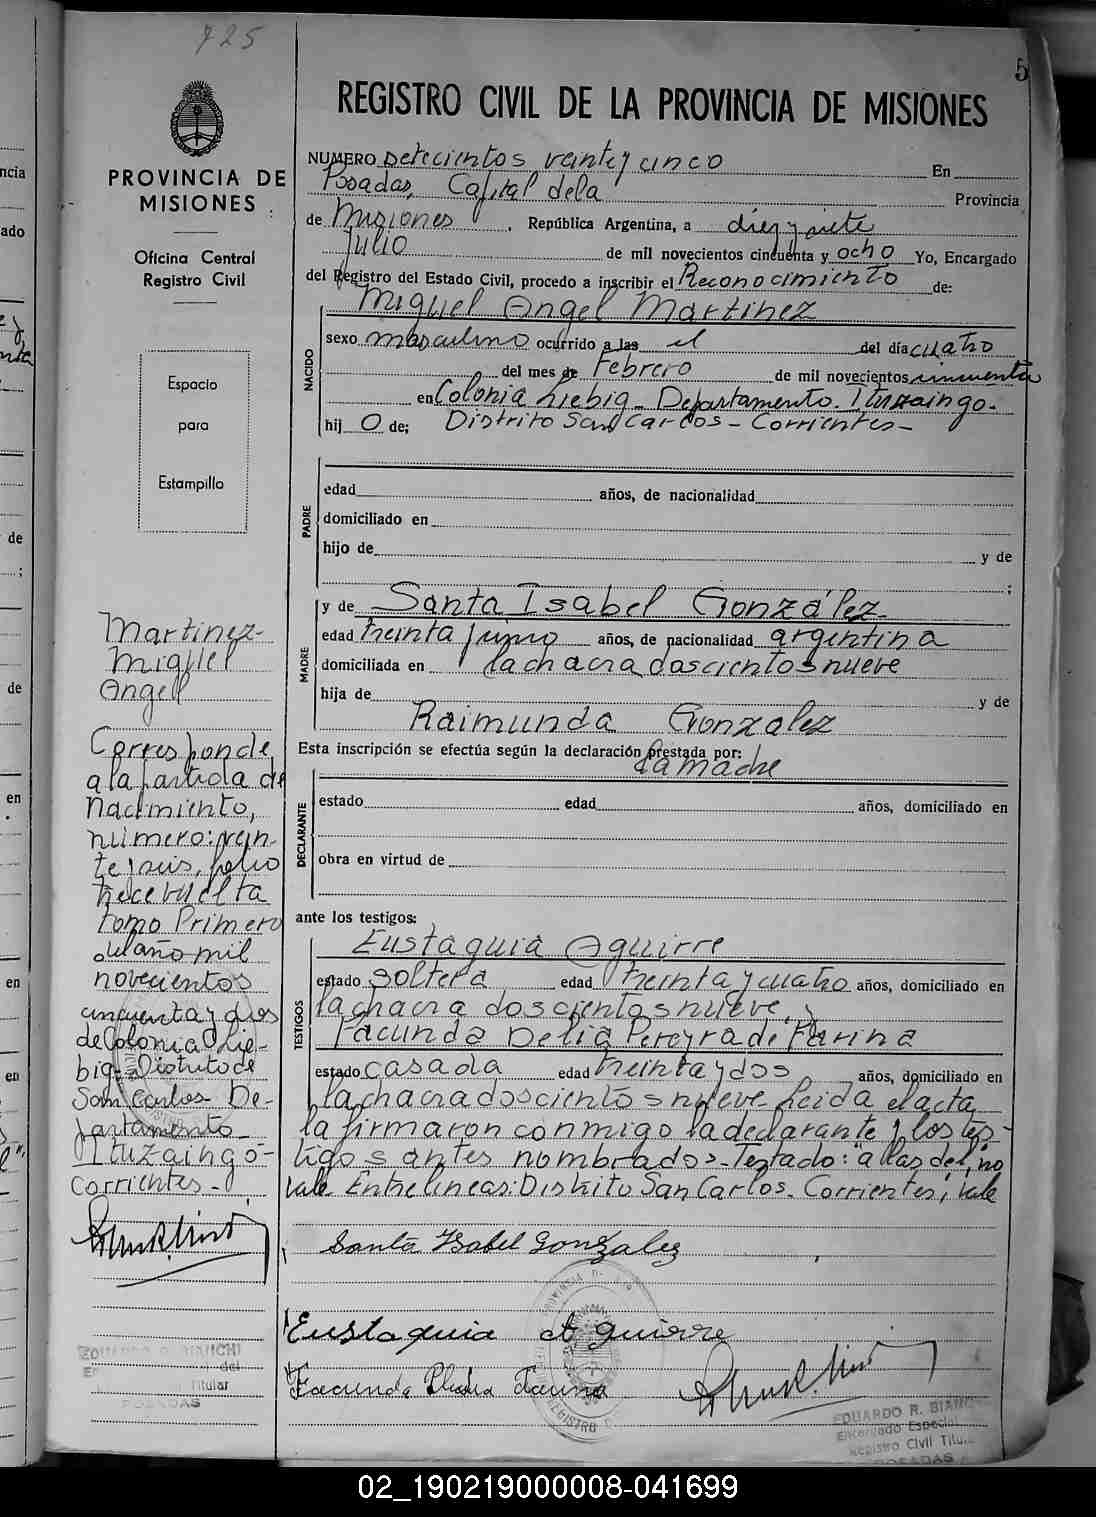 725
5
REGISTRO CIVIL DE LA PROVINCIA DE MISIONES
PROVINCIA DE
MISIONES
Oficina Central
Registro Civil
Espacio
para
Estampillo
Martinez-
Miguel
Angel
Corresponde
a la partida de
Nacimiento,
número: vein-
te seis, folio
trece vuelta
tomo Primero
del año mil
novecientos
cincuenta y dos
de Colonia Lie-
big-Distrito de
San Carlos De-
partamento
Ituzaingó-
Corrientes-
EDUARDO R. BIANCHI
del
Titular
POSADAS
NUMERO Setecientos veinte y cinco En
Posadas, Capital de la Provincia
de Misiones, República Argentina, a diez y siete
Julio de mil novecientos cincuenta y ocho Yo, Encargado
del Registro del Estado Civil, procedo a inscribir el Reconocimiento de:
Miguel Angel Martinez
NACIDO
sexo masculino ocurrido a las el del día cuatro
del mes de Febrero de mil novecientos cincuenta
en Colonia Liebig- Departamento. Ituzaingo.
hij o de; Distrito San Carlos - Corrientes-
PADRE
edad años, de nacionalidad
domiciliado en
hijo de y de
;
MADRE
y de Santa Isabel González
edad treinta y uno años, de nacionalidad argentina
domiciliada en la chacra doscientos nueve
hija de y de
Raimunda Gonzalez
Esta inscripción se efectúa según la declaración prestada por:
la madre
DECLARANTE
estado edad años, domiciliado en
obra en virtud de
ante los testigos:
TESTIGOS
Eustaquia Aguirre
estado soltera edad treinta y cuatro años, domiciliado en
la chacra doscientos nueve, y
Facunda Delia Pereyra de Farina
estado casada edad treinta y dos años, domiciliado en
la chacra doscientos nueve- Leida el acta
la firmaron conmigo la declarante y los tes-
tigos antes nombrados- Testado: "a las del" no
vale- Entre lineas: Distrito San Carlos- Corrientes, vale
Santa Isabel Gonzalez
Eustaquia Aguirre
Facunda Farina
EDUARDO R. BIANC
Encargado Especial
Registro Civil Titu
POSADAS
02_190219000008-041699